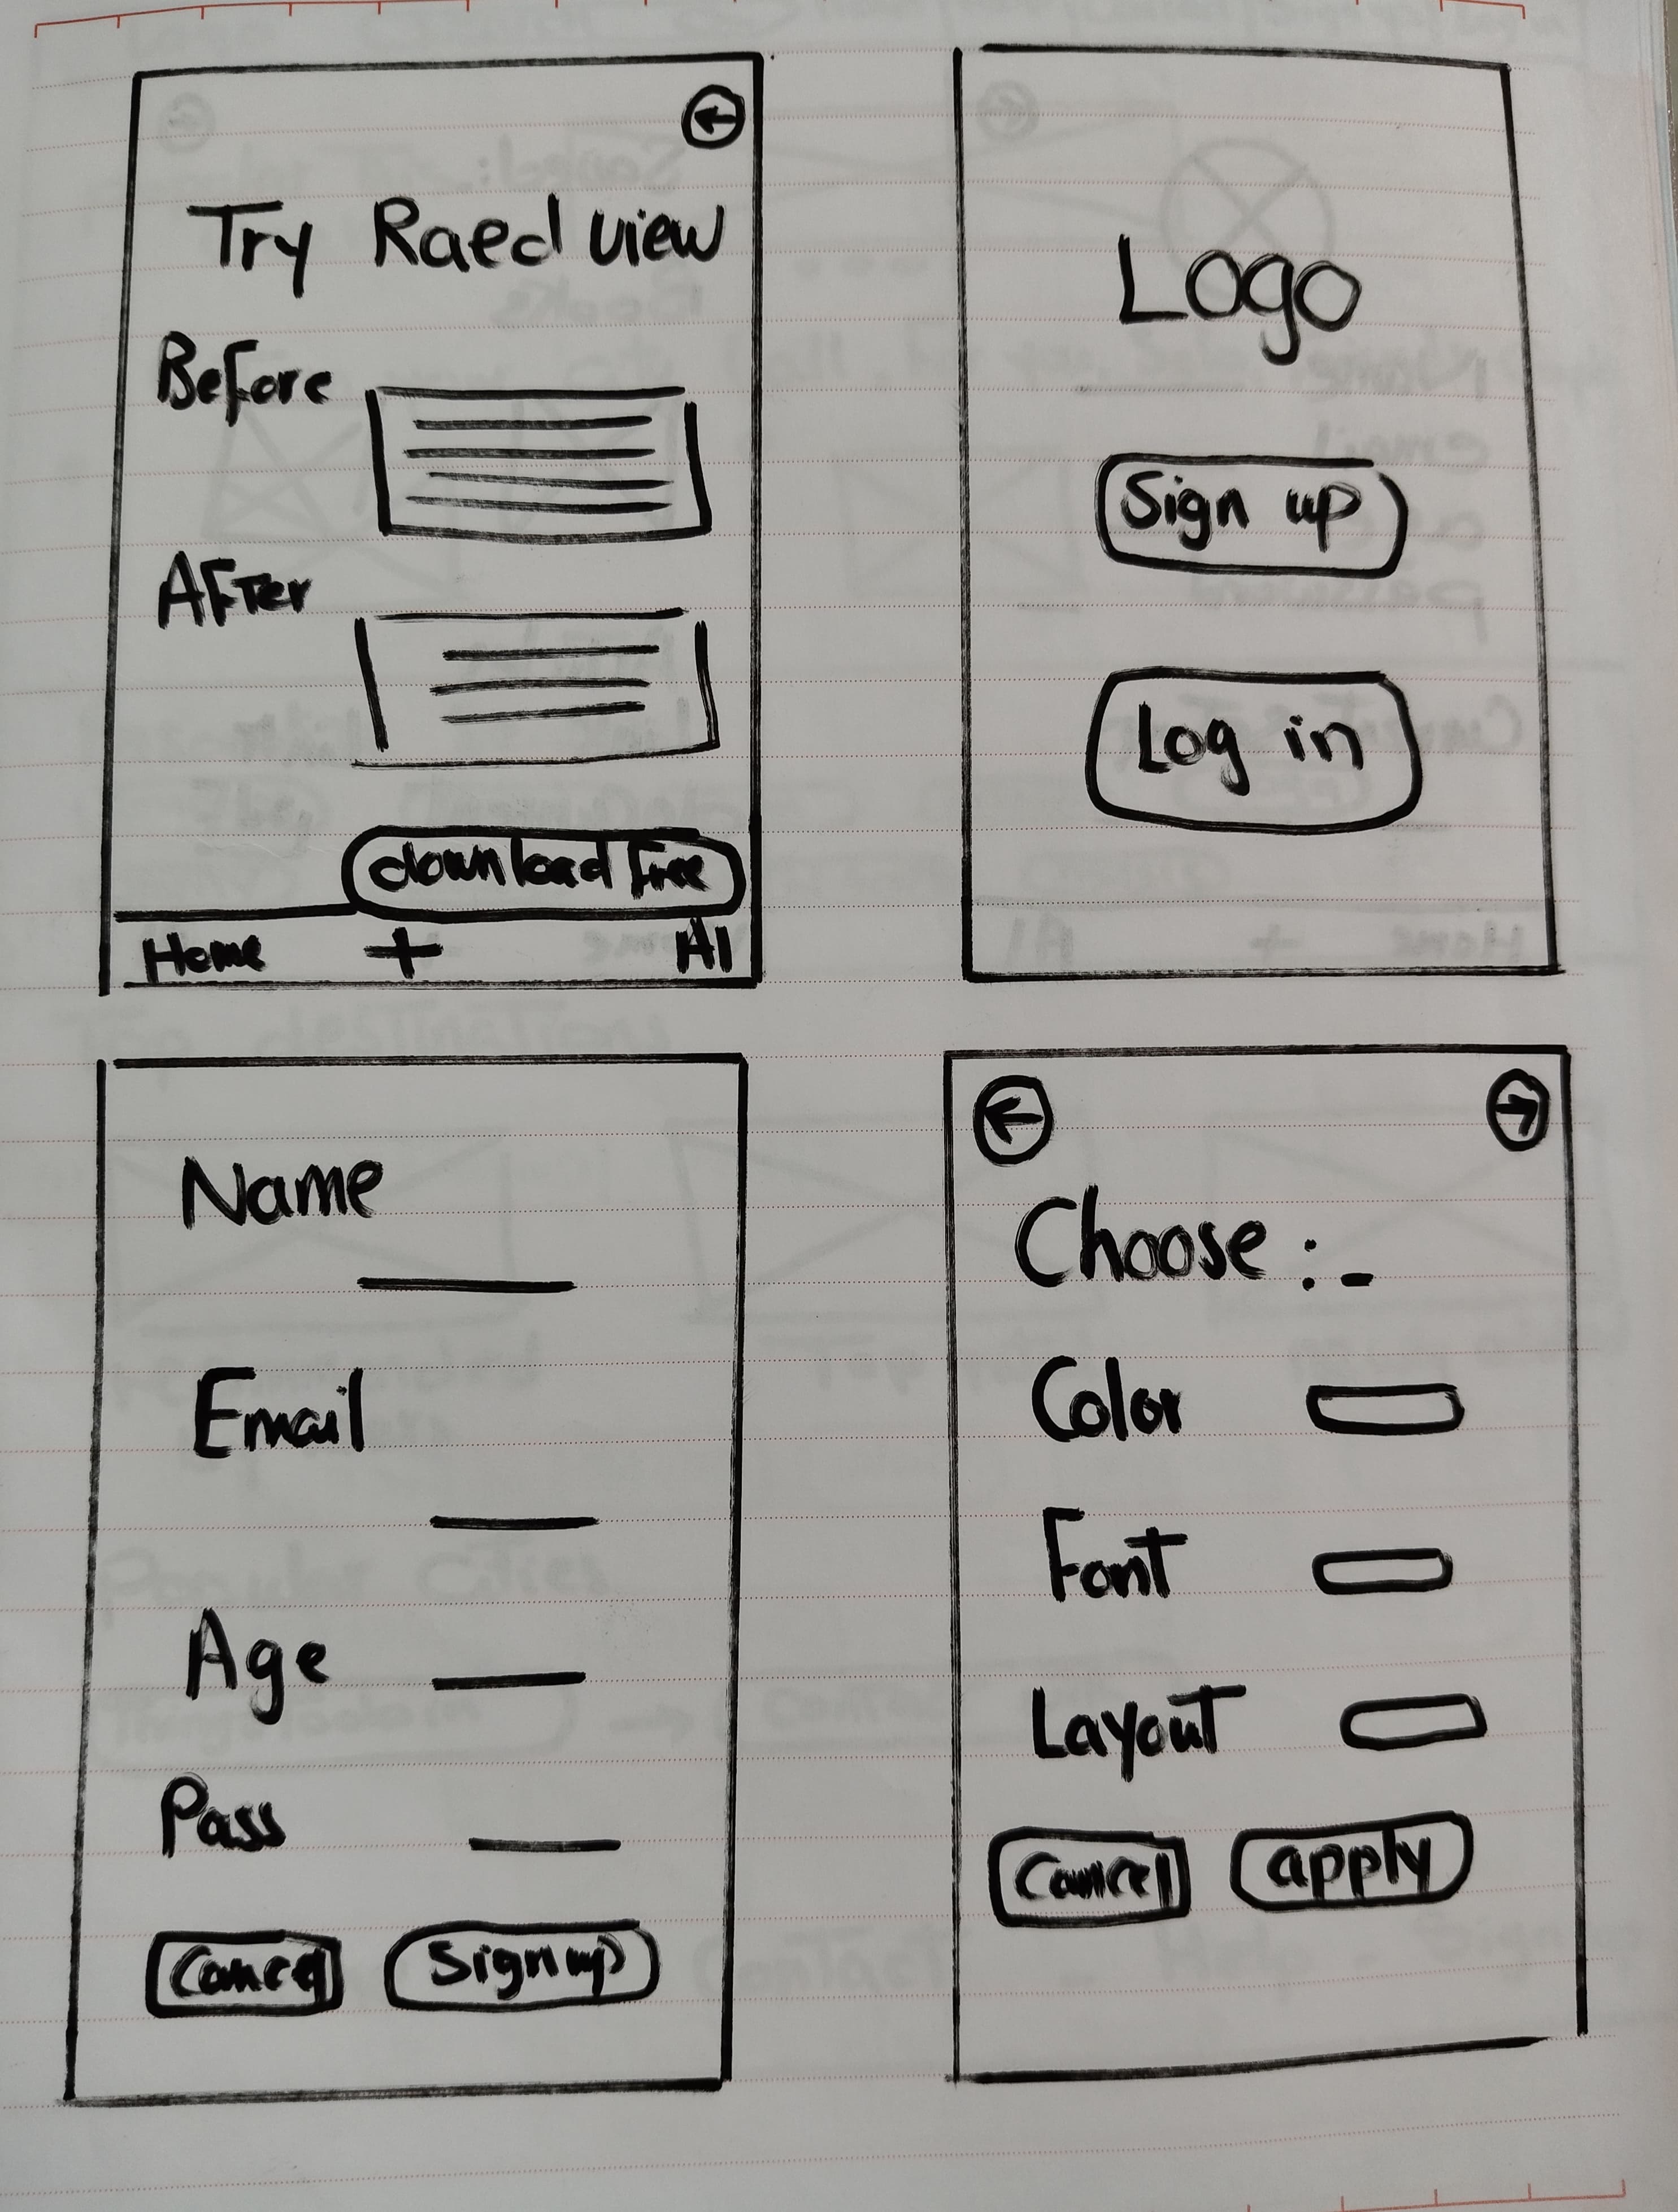 Try Raed view
Before
AFTer
download free
Home + AI
Logo
Sign up
Log in
Name
Email
Age
Pass
Cancel Sign up
Choose :-
Color
Font
Layout
Cancel apply